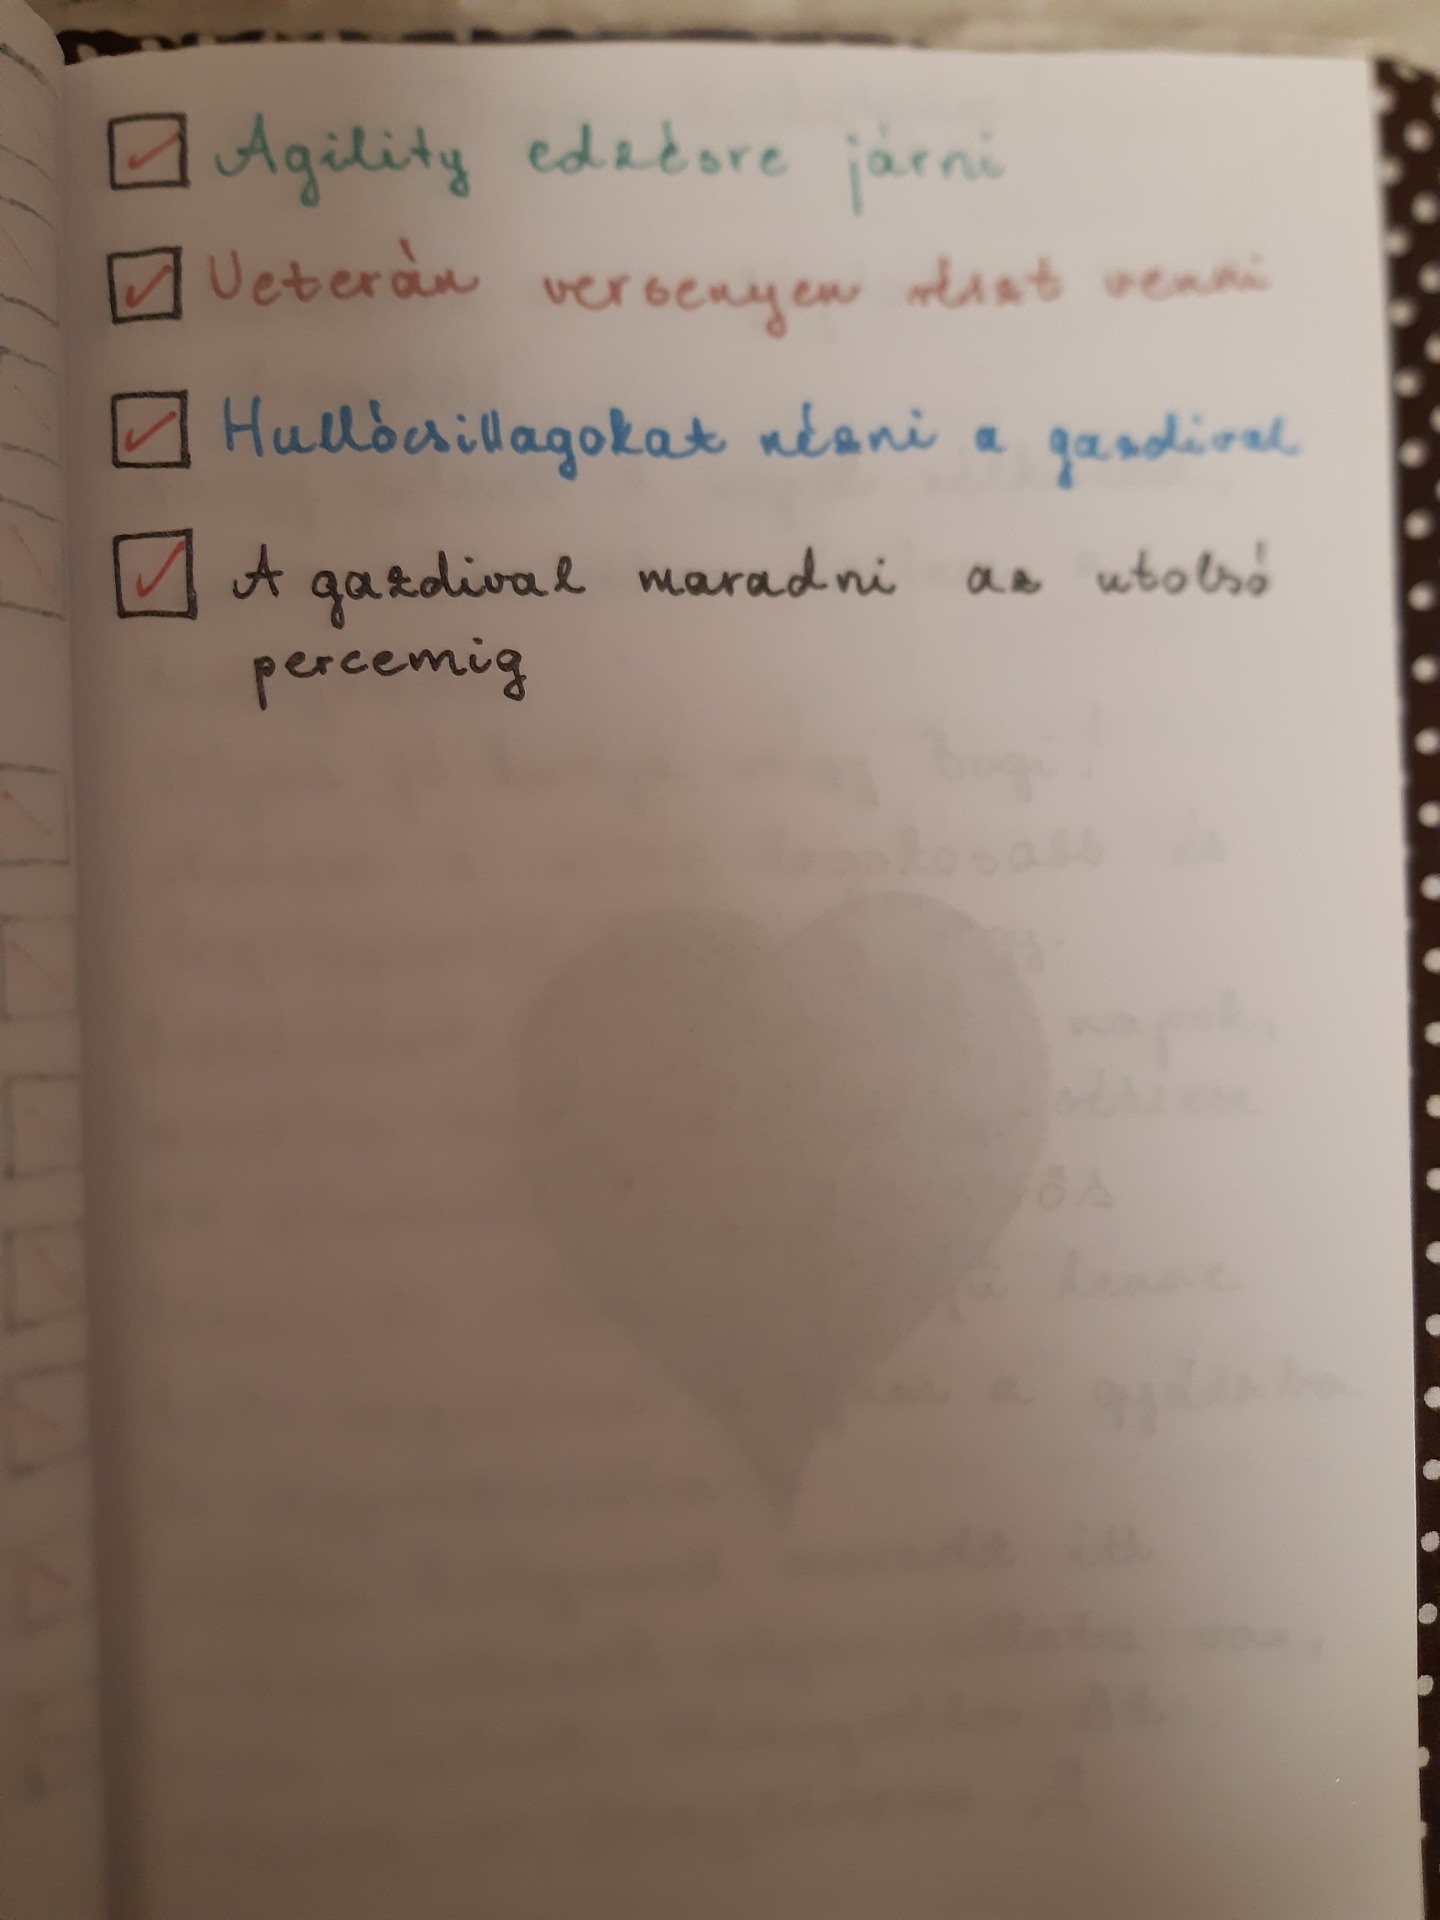 Agility edzésre járni
Veterán versenyen részt venni
Hullócsillagokat nézni a gazdival
A gazdival maradni az utolsó
percemig